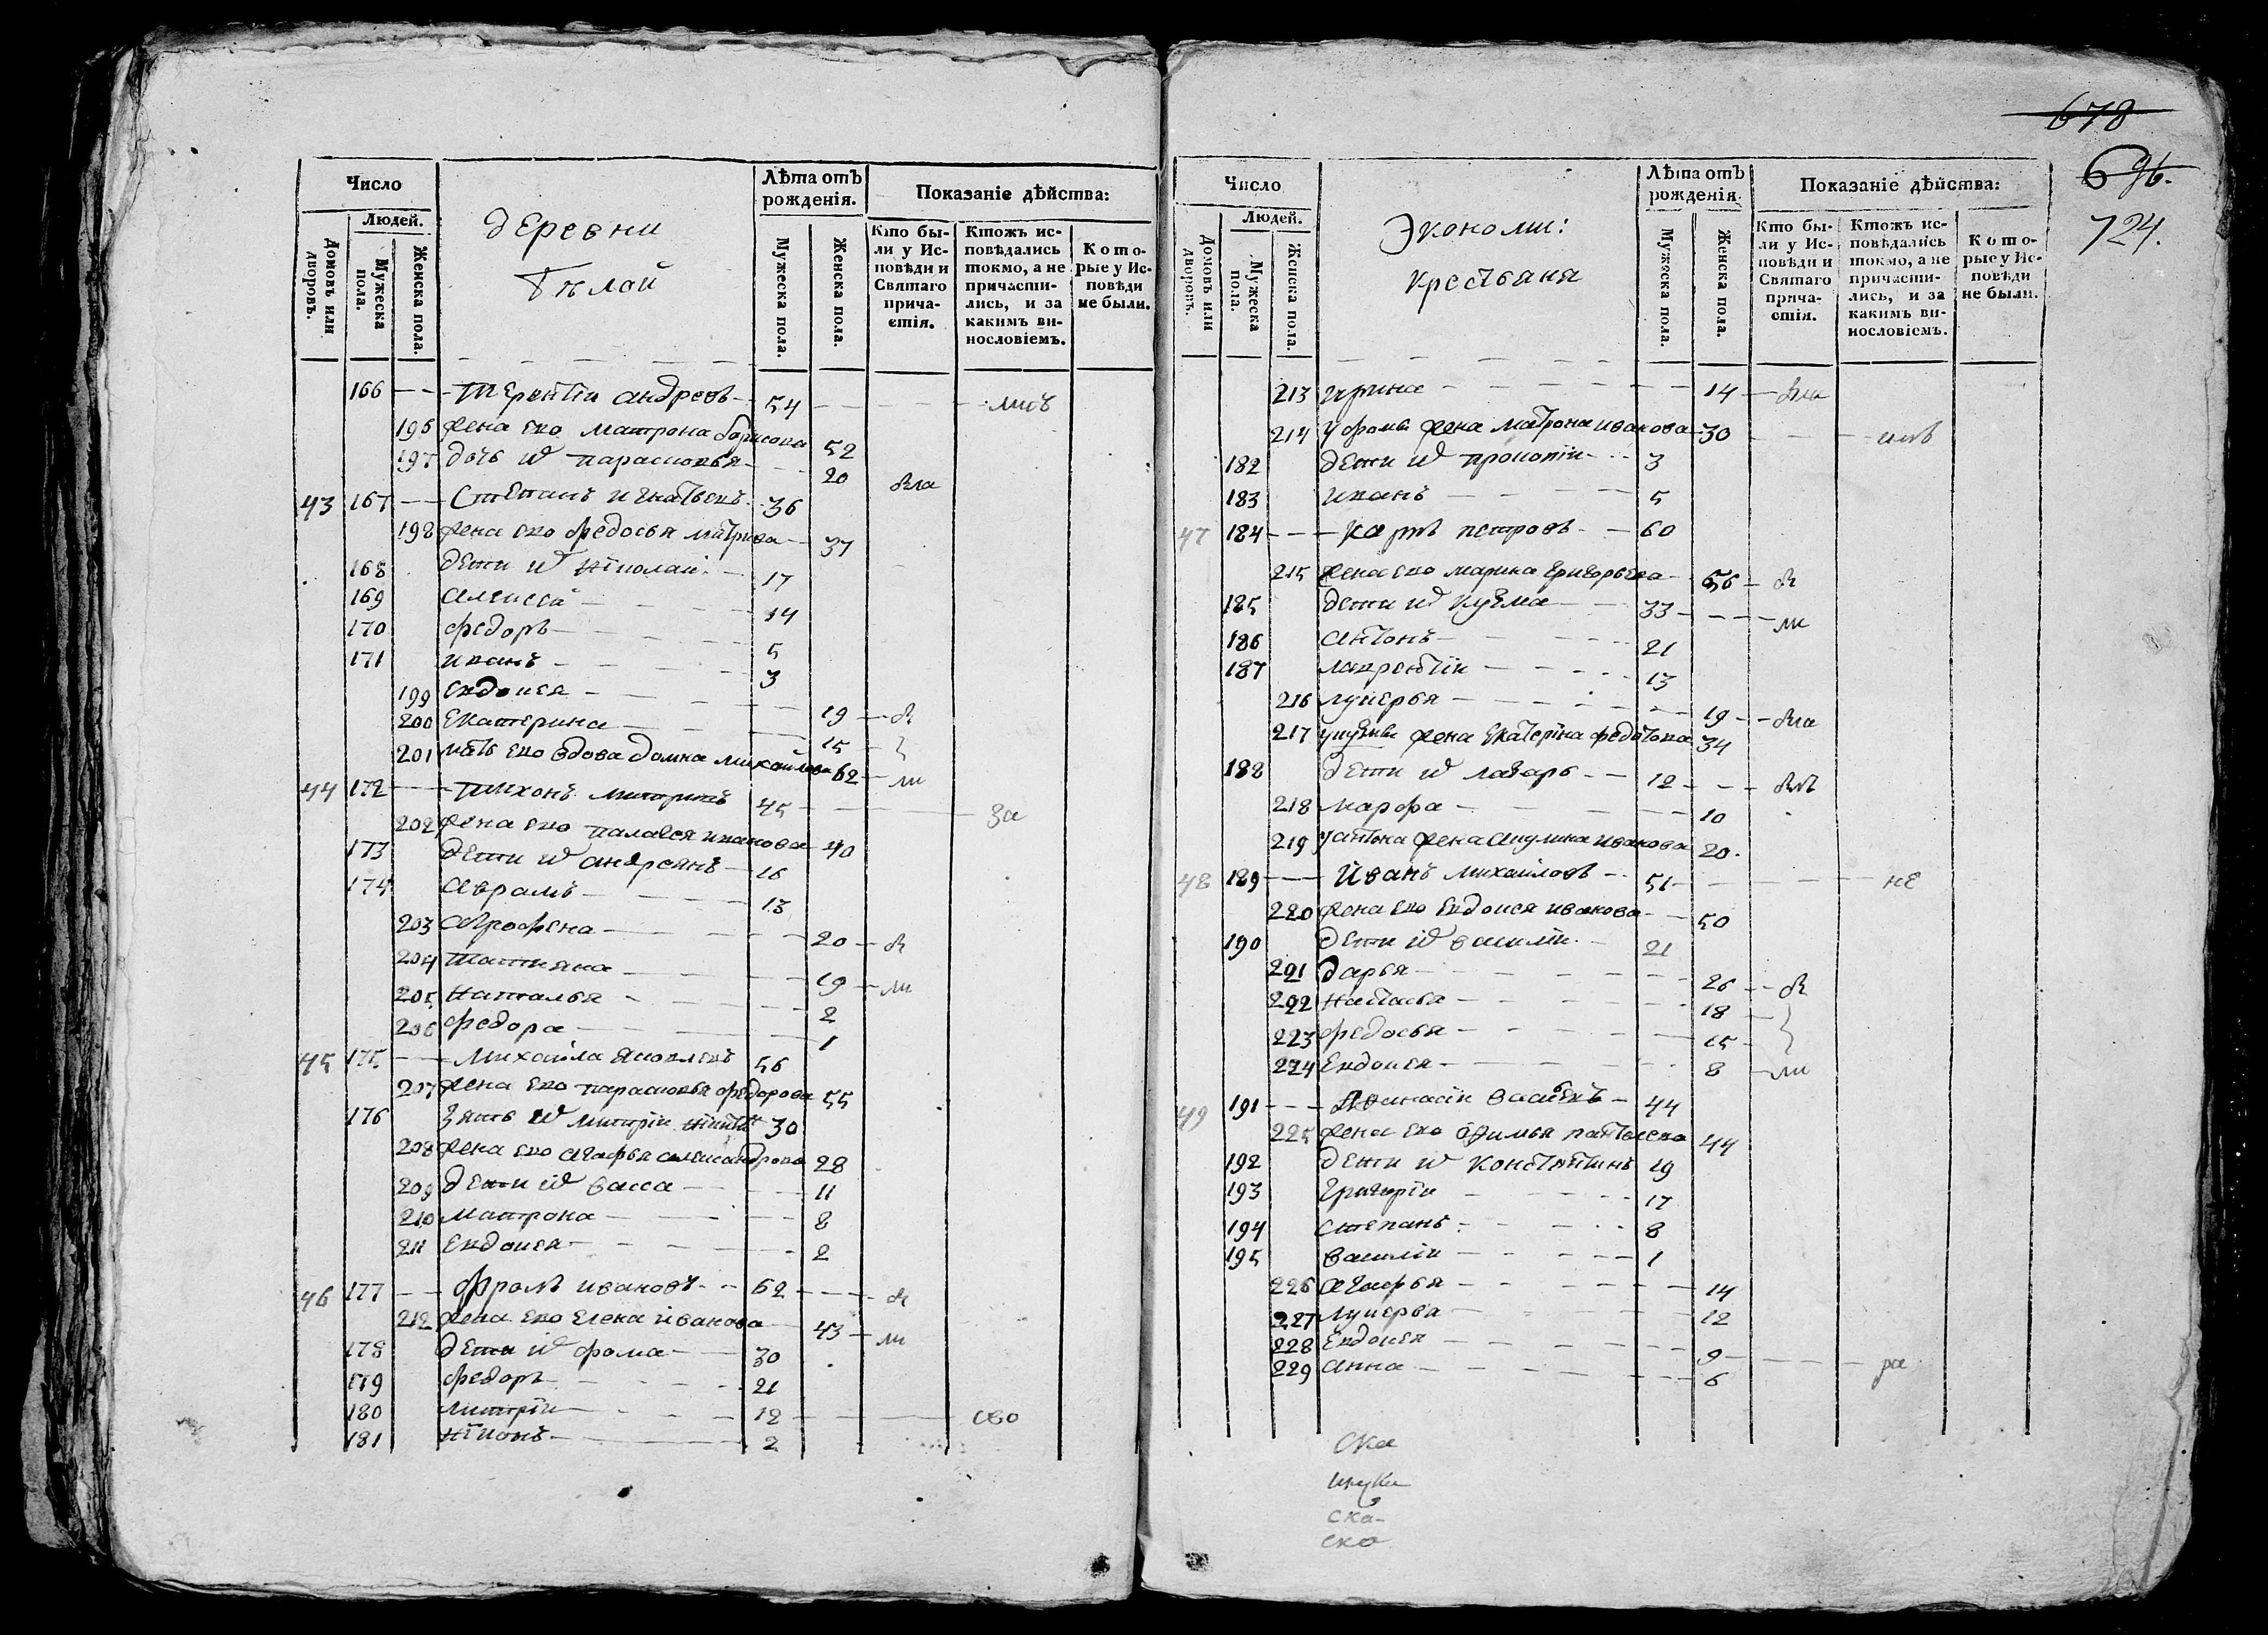 Число
Людей.
Домовъ или дворовъ.
Мужеска пола.
Женска пола.
деревни
Бѣлой
Лѣта отъ рожденія.
Мужеска пола.
Женска пола.
Показаніе дѣйства:
Кто были у Исповѣди и Святаго причастія.
Ктожъ исповѣдались токмо, а не причастились, и за какимъ винословіемъ.
Которые у Исповѣди не были.
166 Терентіи андреевъ 54
196 жена ево матрона борисова 52
197 дочь ихъ парасковья 20
43 167 Степанъ игнатьевъ 36
198 жена ево федосья 37
168 дети ихъ Нiколаи 17
169 алексеи 14
170 федоръ 5
171 иванъ 3
199 евдокея 19
200 Екатерина 15
201 мать ево вдова домна михаилова 62 ли
44 172 тихонъ 45 за
202 жена ево палагея иванова 40
173 дети ихъ андреянъ 16
174 аврамъ 13
203 аграфена 20
204 татияна 19 ли
205 наталья 2
206 федора 1
45 175 михаила яковлевъ 56
207 жена ево парасковья федорова 55
176 зять ихъ митріи 30
208 жена ево агафья александрова 28
209 дети ихъ васса 11
210 матрона 8
211 Евдокея 2
46 177 фролъ ивановъ 62
212 жена ево Елена иванова 43 ли
178 дети ихъ фома 30
179 федоръ 21
180 митріи 12 сво
181 нiконъ 2
678
696.
724.
Число
Людей.
Домовъ или дворовъ.
Мужеска пола.
Женска пола.
Экономи:
крестьяня
Лѣта отъ рожденія.
Мужеска пола.
Женска пола.
Показаніе дѣйства:
Кто были у Исповѣди и Святаго причастія.
Ктожъ исповѣдались токмо, а не причастились, и за какимъ винословіемъ.
Которые у Исповѣди не были.
213 ирина 14
214 у фомы жена матрона иванова 30
182 дети ихъ прокопіи 3
183 иванъ 5
47 184 карпъ петровъ 60
215 жена ево марина григорьева 56
185 дети ихъ кузма 33 ли
186 антонъ 21
187 лаврентіи 13
216 лукерья 19
217 у кузмы жена Екатеріна 34
188 дети ихъ лазарь 12
218 марфа 10
219 у антона жена акулина иванова 20
48 189 Иванъ михаиловъ 51 не
220 жена ево евдокея иванова 50
190 дети ихъ василіи 21
221 дарья 26
222 настасья 18
223 федосья 15
224 Евдокея 8 ли
49 191 Афанасіи васильевъ 44
225 жена ево 44
192 дети ихъ константинъ 19
193 григоріи 17
194 степанъ 8
195 василіи 1
226 агафья 14
227 лукерья 12
228 Евдокея 9
229 анна 6 ра